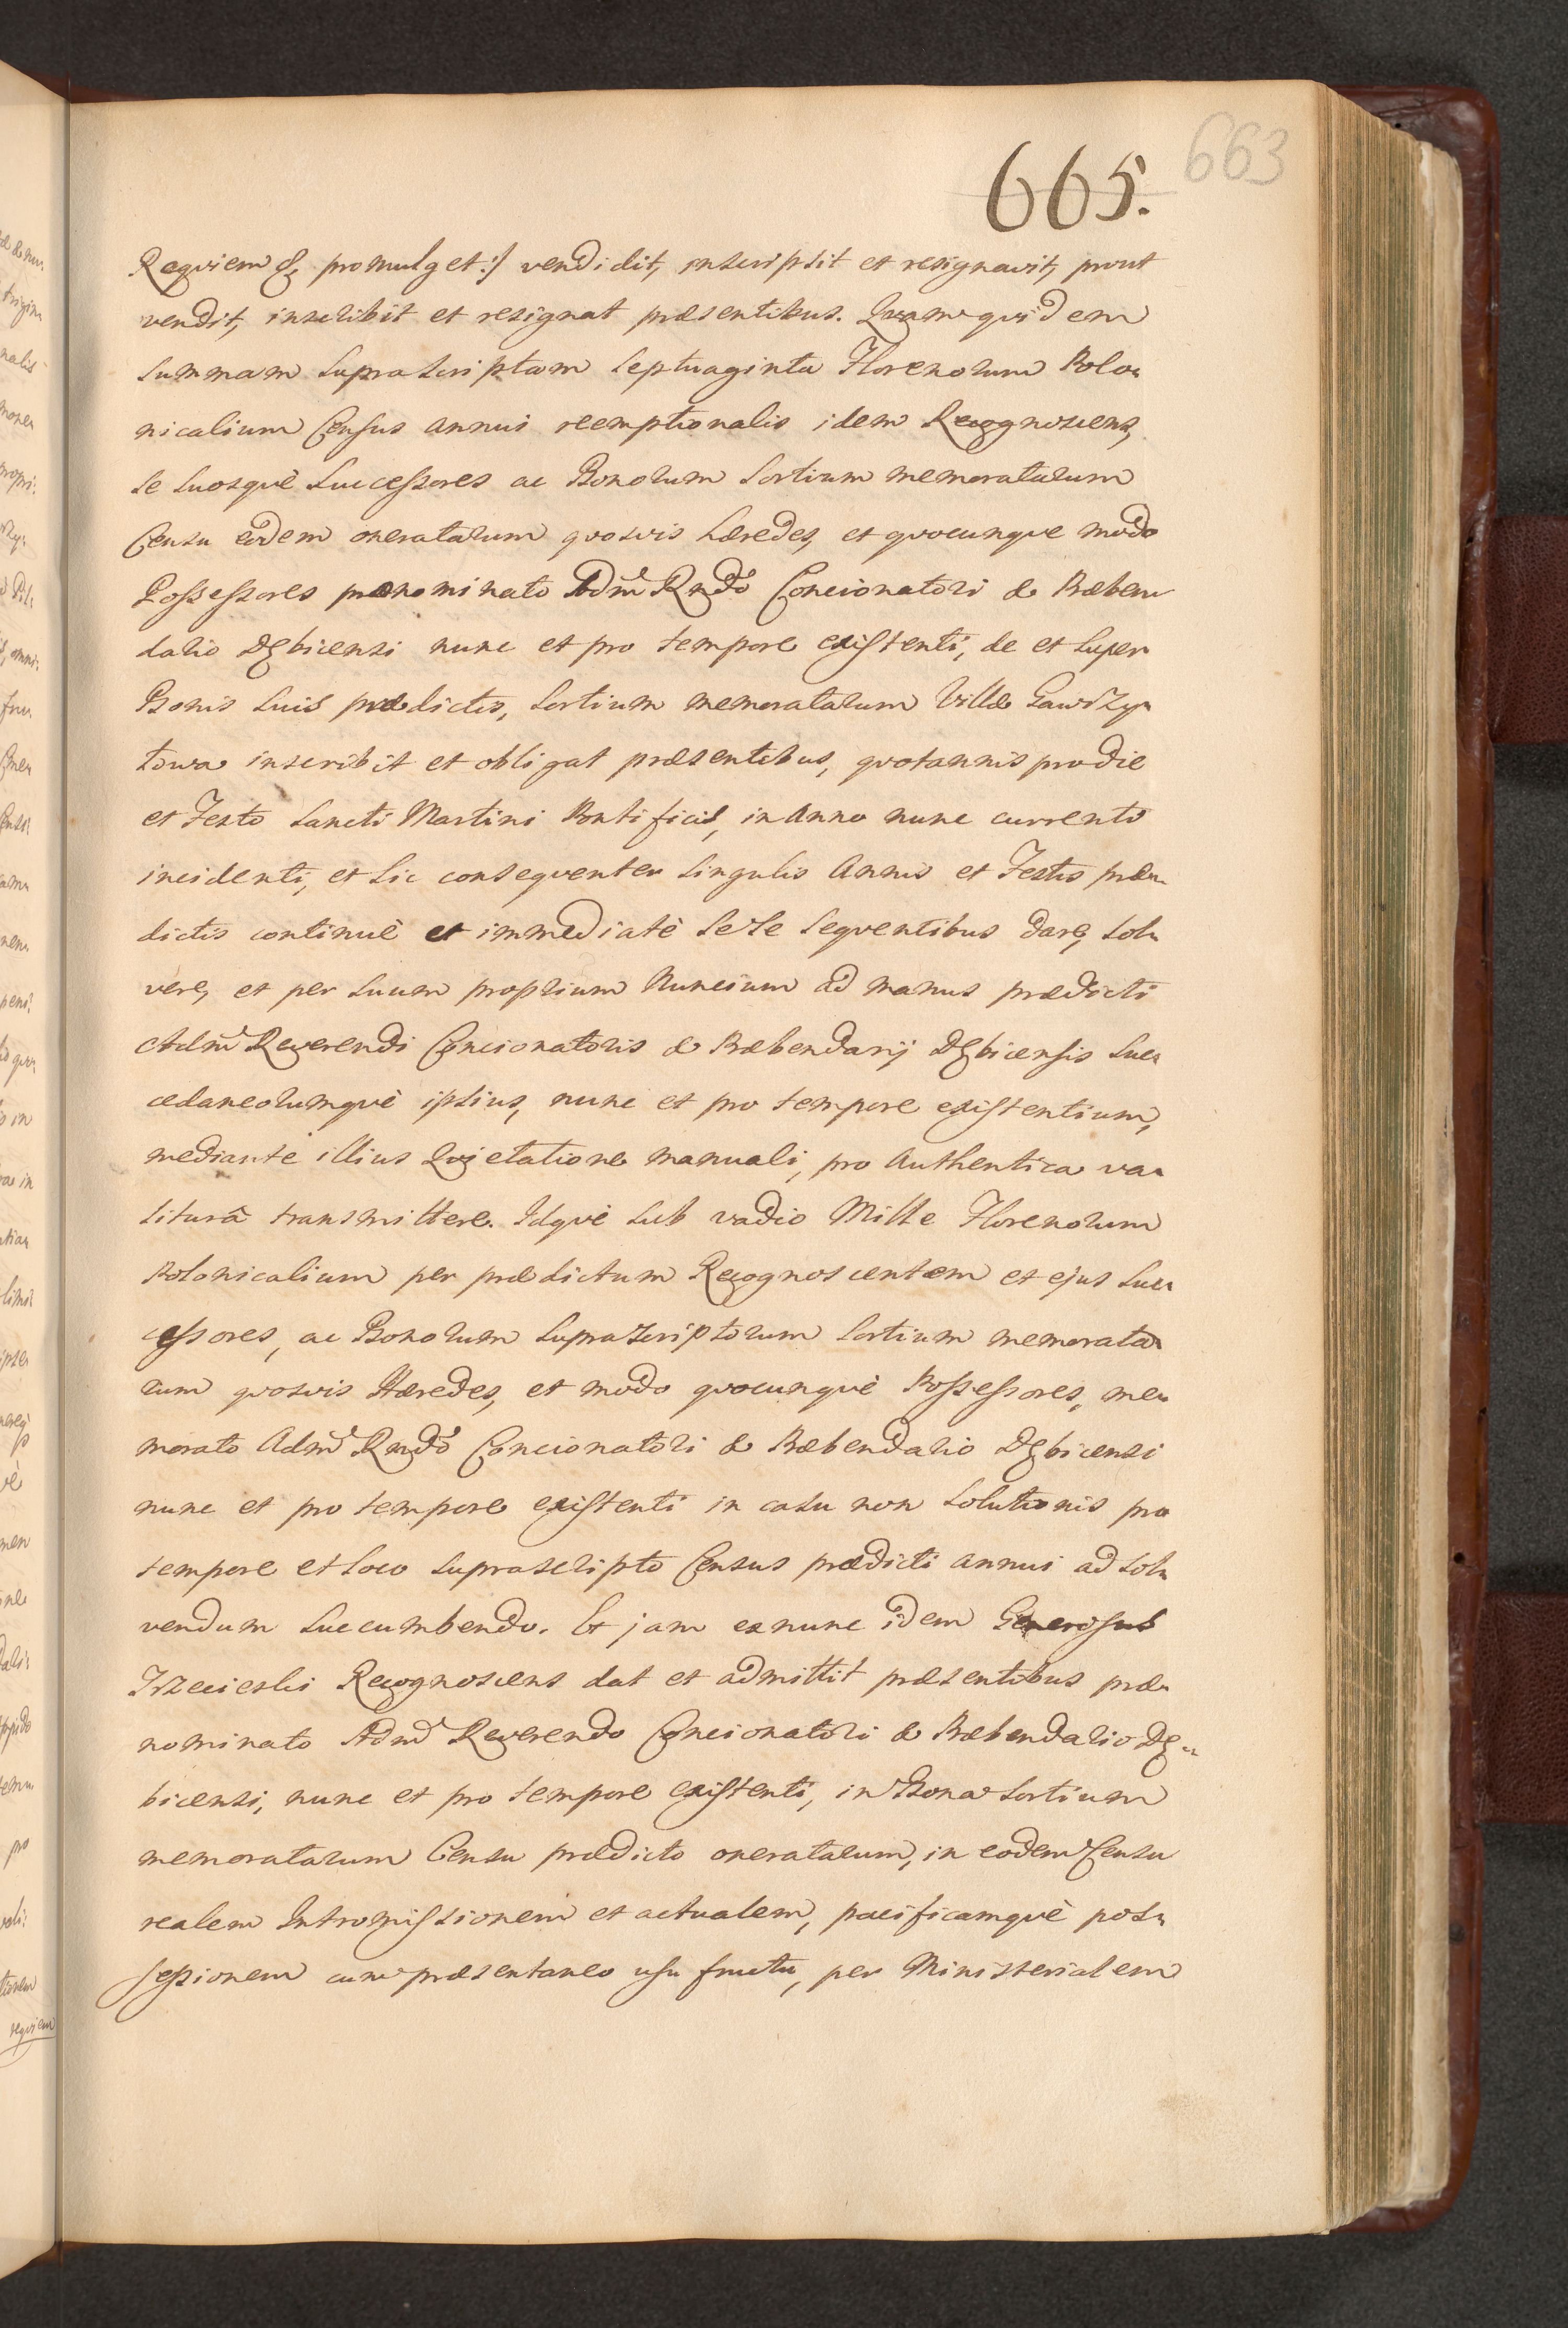 663
665.
Requiem & promulget:/ vendidit, inscripsit et resignavit, prout
vendit, inscribit et resignat præsentibus. Quam quidem
summam suprascriptam septuaginta Florenorum Polo„
nicalium Census annui reemptionalis idem Recognoscens,
se suosquè successores ac Bonorum sortium memoratarum
Censu eodem oneratarum quosvis hæredes, et quocunque modo
Possessores prænominato Adm̃ Rndo Concionatori & Præben„
dario Dębicensi nunc et pro tempore existenti, de et super
Bonis suis prædictis, sortium memoratarum Villæ Gawrzy„
łowa inscribit et obligat præsentibus, quotannis pro die
et Festo Sancti Martini Pontificis, in Anno nunc currente
incidenti, et sic consequenter singulis Annis et Festis præ„
dictis continuè et immediatè sese sequentibus dare, sol„
vere, et per suum proprium Nuncium ad manus prædicti
Adm̃ Reverendi Concionatoris & Præbendarij Dębicensis suc„
cedaneorumquè ipsius, nunc et pro tempore existentium,
mediante illius Quietatione manuali, pro Authentica va„
liturâ transmittere. Idquè sub vadio Mille Florenorum
Polonicalium per prædictum Recognoscentem et ejus suc„
cessores, ac Bonorum suprascriptorum sortium memorata„
rum quosvis Hæredes, et modo quocunquè Possessores, me„
morato Adm̃ Rndo Concionatori & Præbendario Dębicensi
nunc et pro tempore existenti in casu non solutionis pro
tempore et loco suprascripto Census prædicti annui ad sol„
vendum succumbendo. Et jam ex nunc idem Generosus
Trzecieski Recognoscens dat et admittit præsentibus præ„
nominato Adm̃ Reverendo Concionatori & Præbendario Dę„
bicensi, nunc et pro tempore existenti, in Bona sortium
memoratarum Censu prædicto oneratarum, in eodem Censu
realem Intromissionem et actualem, pacificamquè pos„
sessionem cum præsentaneo usu fructu, per Ministerialem